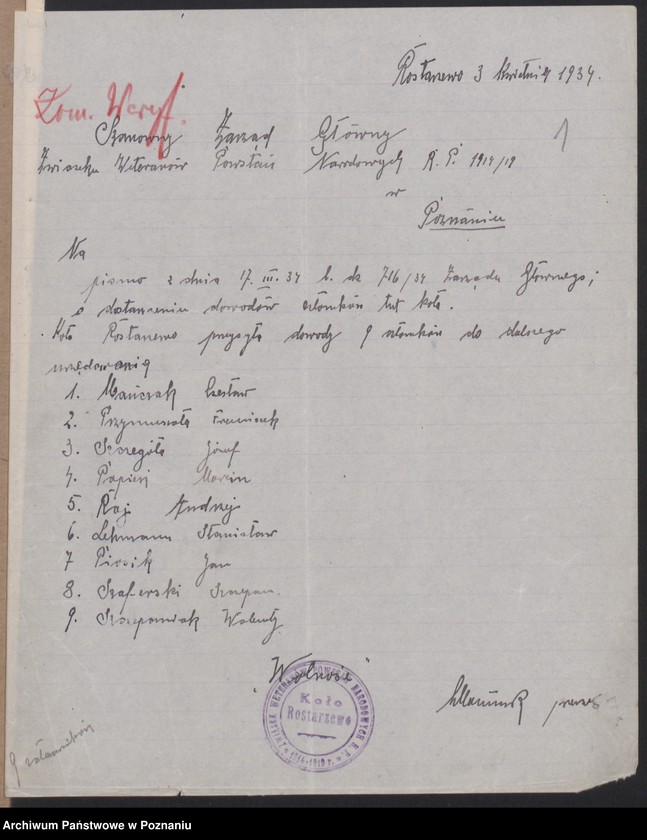 Rostarzewo 3 kwietnia 1934.
Kom. Weryf.
Szanowny Zarząd Główny
1
Związku Weteranów Powstań Narodowych R. P. 1914/19
w
Poznaniu
Na
pismo z dnia 17. III. 34 l. dz 716/34 Zarządu Głównego;
o dostarczeniu dowodów członków tut koła.
Koło Rostarzewo przesyła dowody 9 członków do dalszego
urzędowania
1. Mańczak Czesław
2. Przymuszała Franciszek
3. Szczegóła Józef
4. Papież Marcin
5. Raj Andrzej
6. Lehmann Stanisław
7 Piosik Jan
8. Szaferski Szczepan.
9. Szczepaniak Walenty
"Wolność"
ZWIĄZEK WETERANÓW POWSTAŃ NARODOWYCH R. P.
Koło
Rostarzewo
1914-1919 r.
prezes
9 załączników
Archiwum Państwowe w Poznaniu